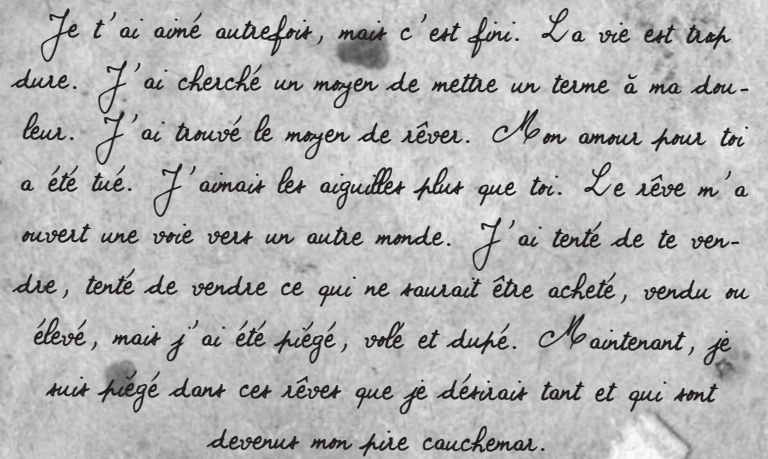 Je t'ai aimé autrefois, mais c'est fini. La vie est trop
dure. J'ai cherché un moyen de mettre un terme à ma dou-
leur. J'ai trouvé le moyen de rêver. Mon amour pour toi
a été tué. J'aimais les aiguilles plus que toi. Le rêve m'a
ouvert une voie vers un autre monde. J'ai tenté de te ven-
dre, tenté de vendre ce qui ne saurait être acheté, vendu ou
élevé, mais j'ai été piégé, volé et dupé. Maintenant, je
suis piégé dans ces rêves que je désirais tant et qui sont
devenus mon pire cauchemar.